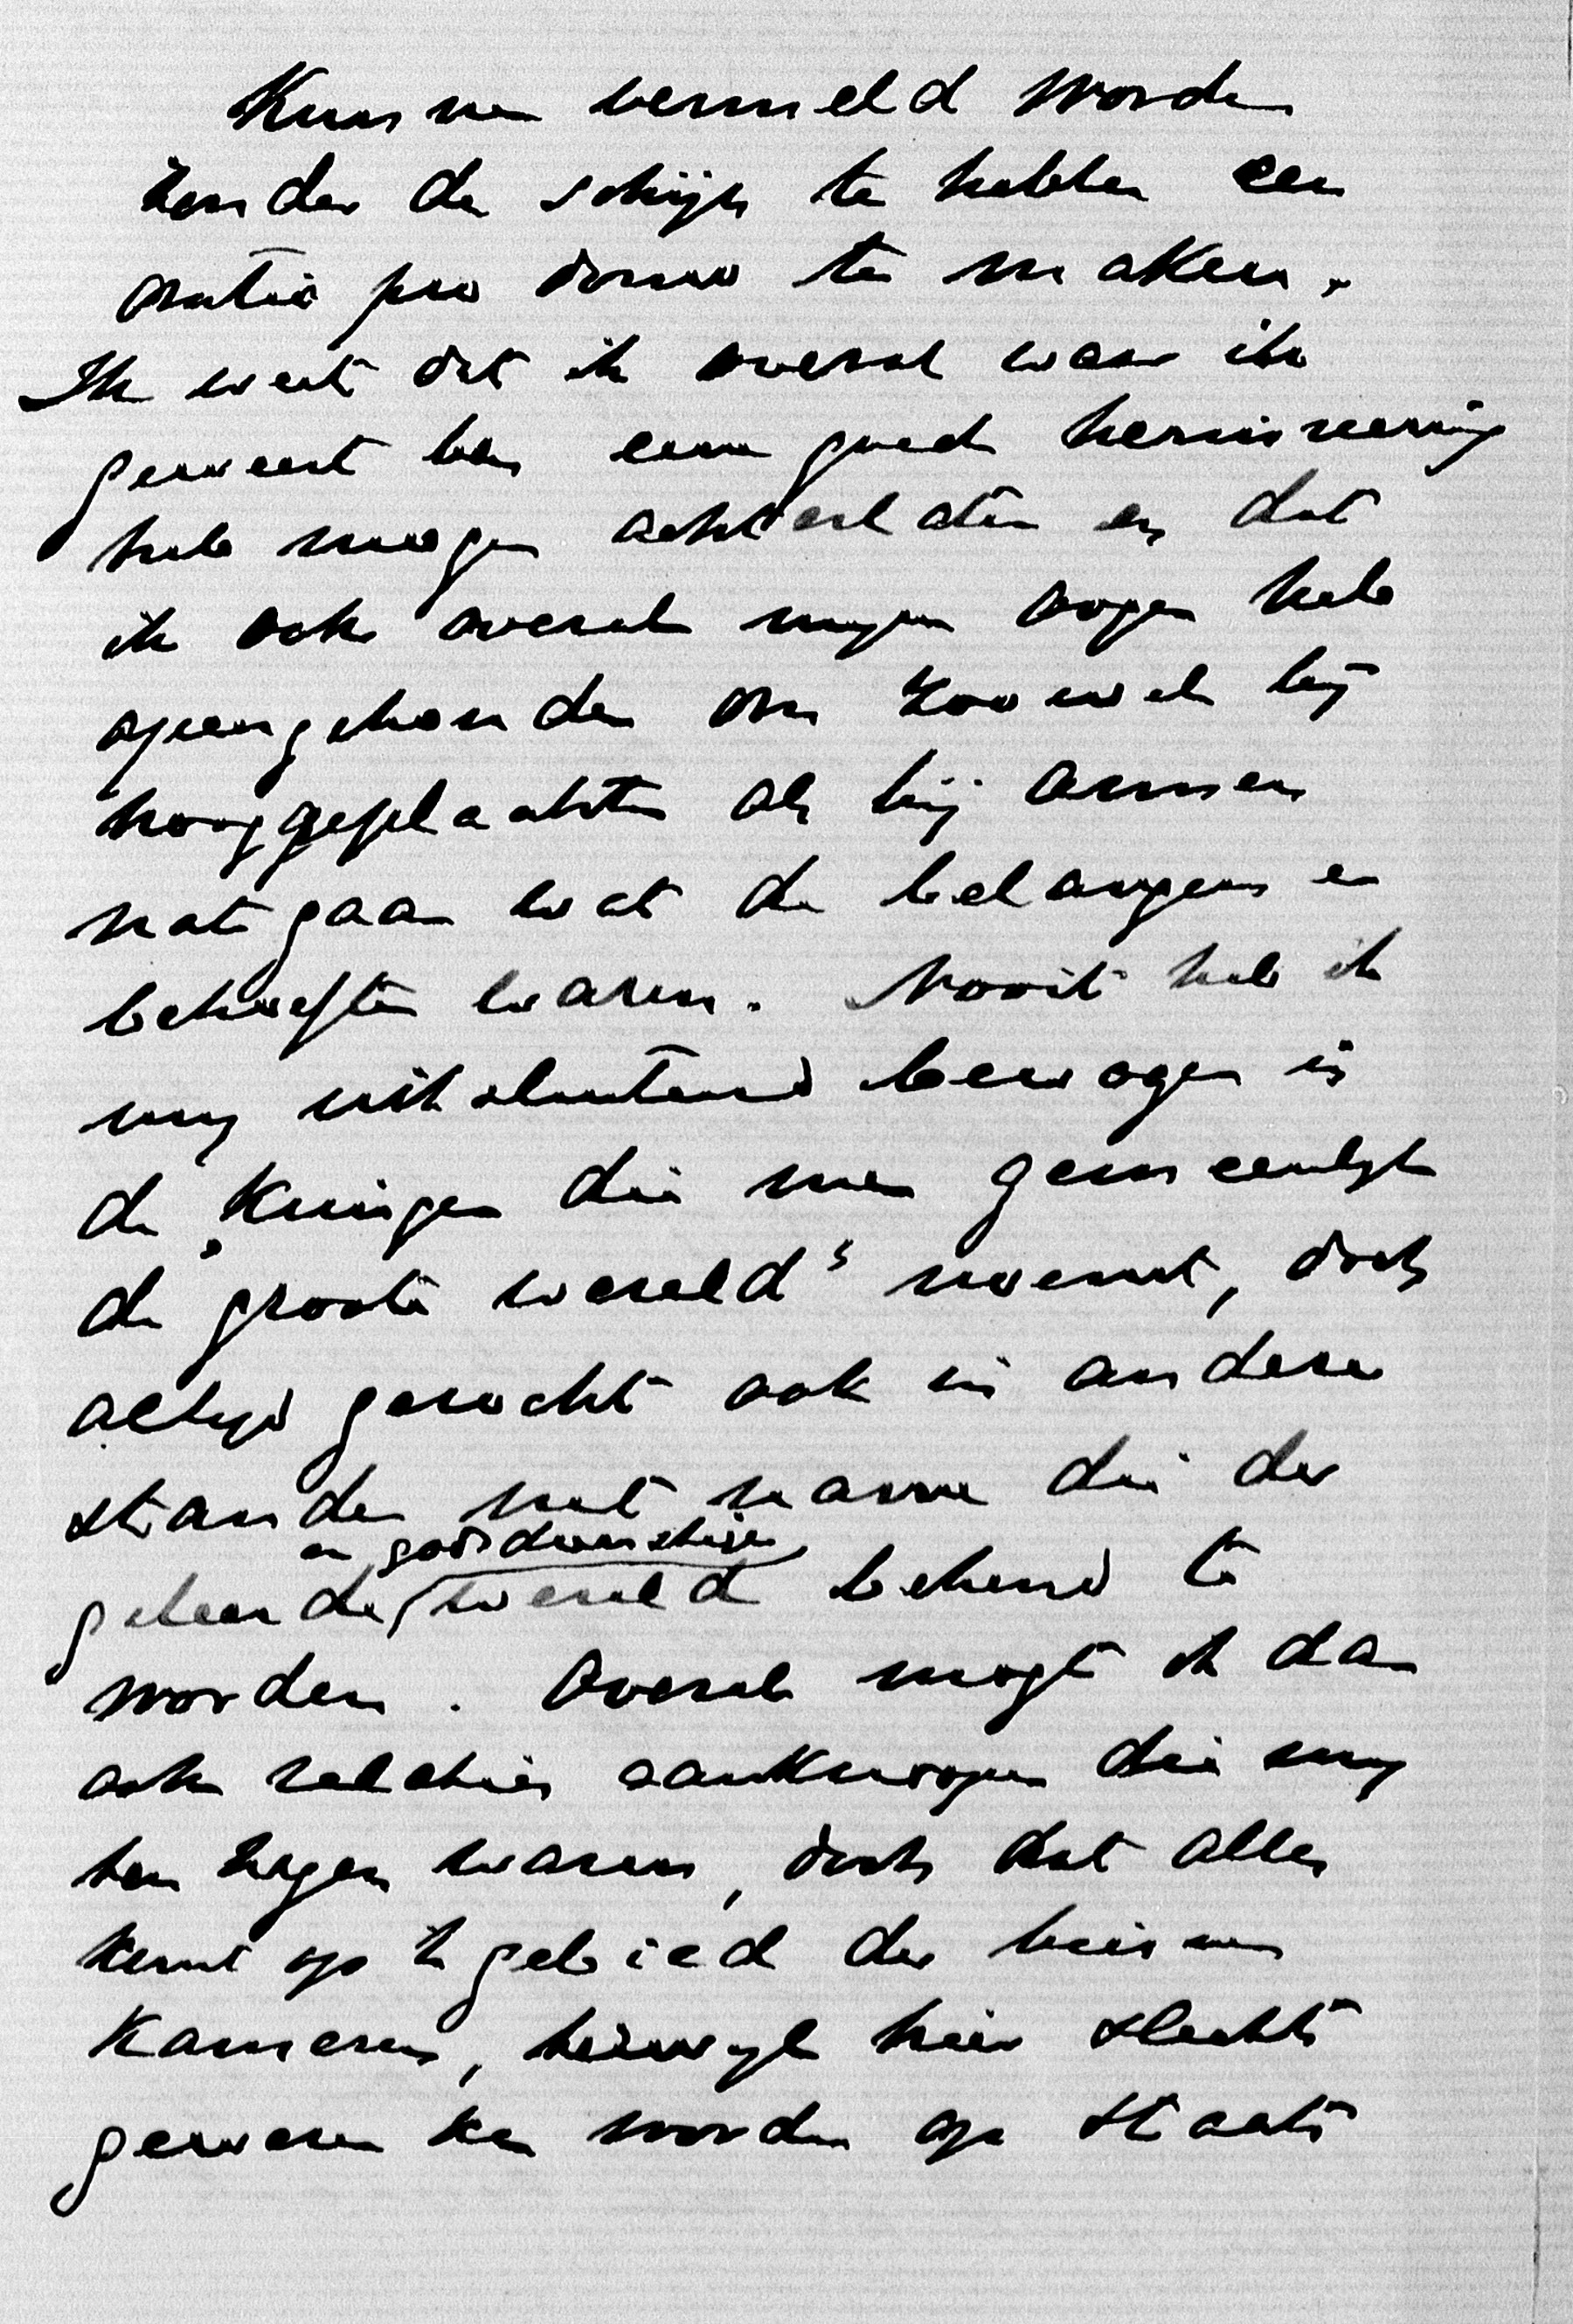 Kunnen vermeld worden
zonder de schijn te hebben een
oratio pro domo te maken.
Ik weet dat ik overal waar ik
geweest ben eene goede herinnering
heb mogen achterlaten en dat
ik ook overal mijn oogen heb
opengehouden om zoowel bij
hooggeplaatsten als bij armen
na te gaan wat de belangen en
behoeften waren. Nooit heb ik
mij uitsluitend bewogen in
de kringen die men gemeenlijk
de „groote wereld" noemt, doch
altijd gezocht ook in andere
standen met name die der
en godsdienstige
geleerde wereld bekend te
worden. Overal mogt ik dan
ook relaties aanknoopen die mij
ten zegen waren, doch dat alles
komt op 't gebied der binnen
Kameren, terwijl hier slechts
gewezen kan worden op staats